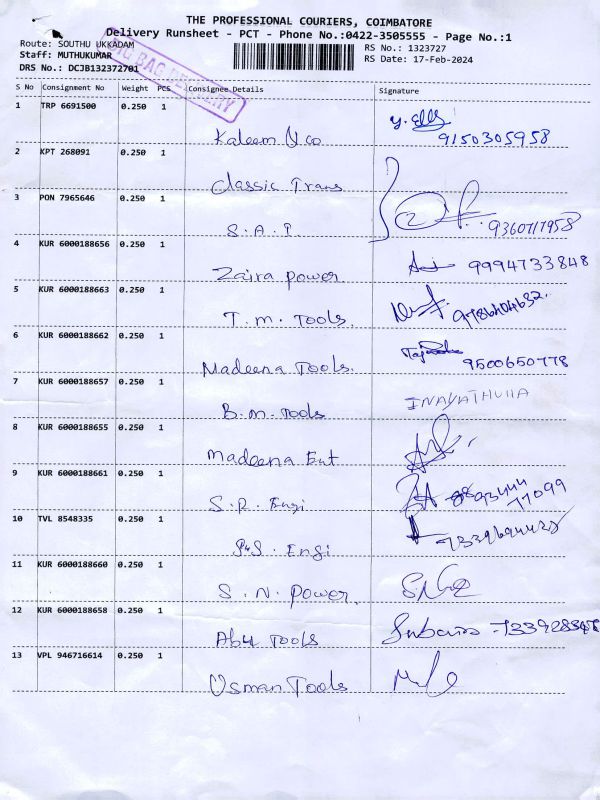 THE PROFESSIONAL COURIERS, COIMBATORE
Delivery Runsheet - PCT - Phone No.:0422-3505555 - Page No.:1
Route: SOUTHU UKKADAM
RS No.: 1323727
Staff: MUTHUKUMAR
RS Date: 17-Feb-2024
DRS No.: DCJB132372701
BIG BAG DELIVERY
S No Consignment No Weight PCS Consignee Details Signature
1 TRP 6691500 0.250 1
Kaleem & co 9150305958
2 KPT 268091 0.250 1
Classic Trans
3 PON 7965646 0.250 1
S.A.P 9360717958
4 KUR 6000188656 0.250 1
Zaira power 9994733848
5 KUR 6000188663 0.250 1
T.M. Tools. 9786404632.
6 KUR 6000188662 0.250 1
Madeena Tools. 9500650778
7 KUR 6000188657 0.250 1
B.M. Tools INAYATHULLA
8 KUR 6000188655 0.250 1
Madeena Ent
9 KUR 6000188661 0.250 1
S.R. Engi
10 TVL 8548335 0.250 1
Engi
11 KUR 6000188660 0.250 1
S.N. Power.
12 KUR 6000188658 0.250 1
Abu Tools
13 VPL 946716614 0.250 1
Usman Tools